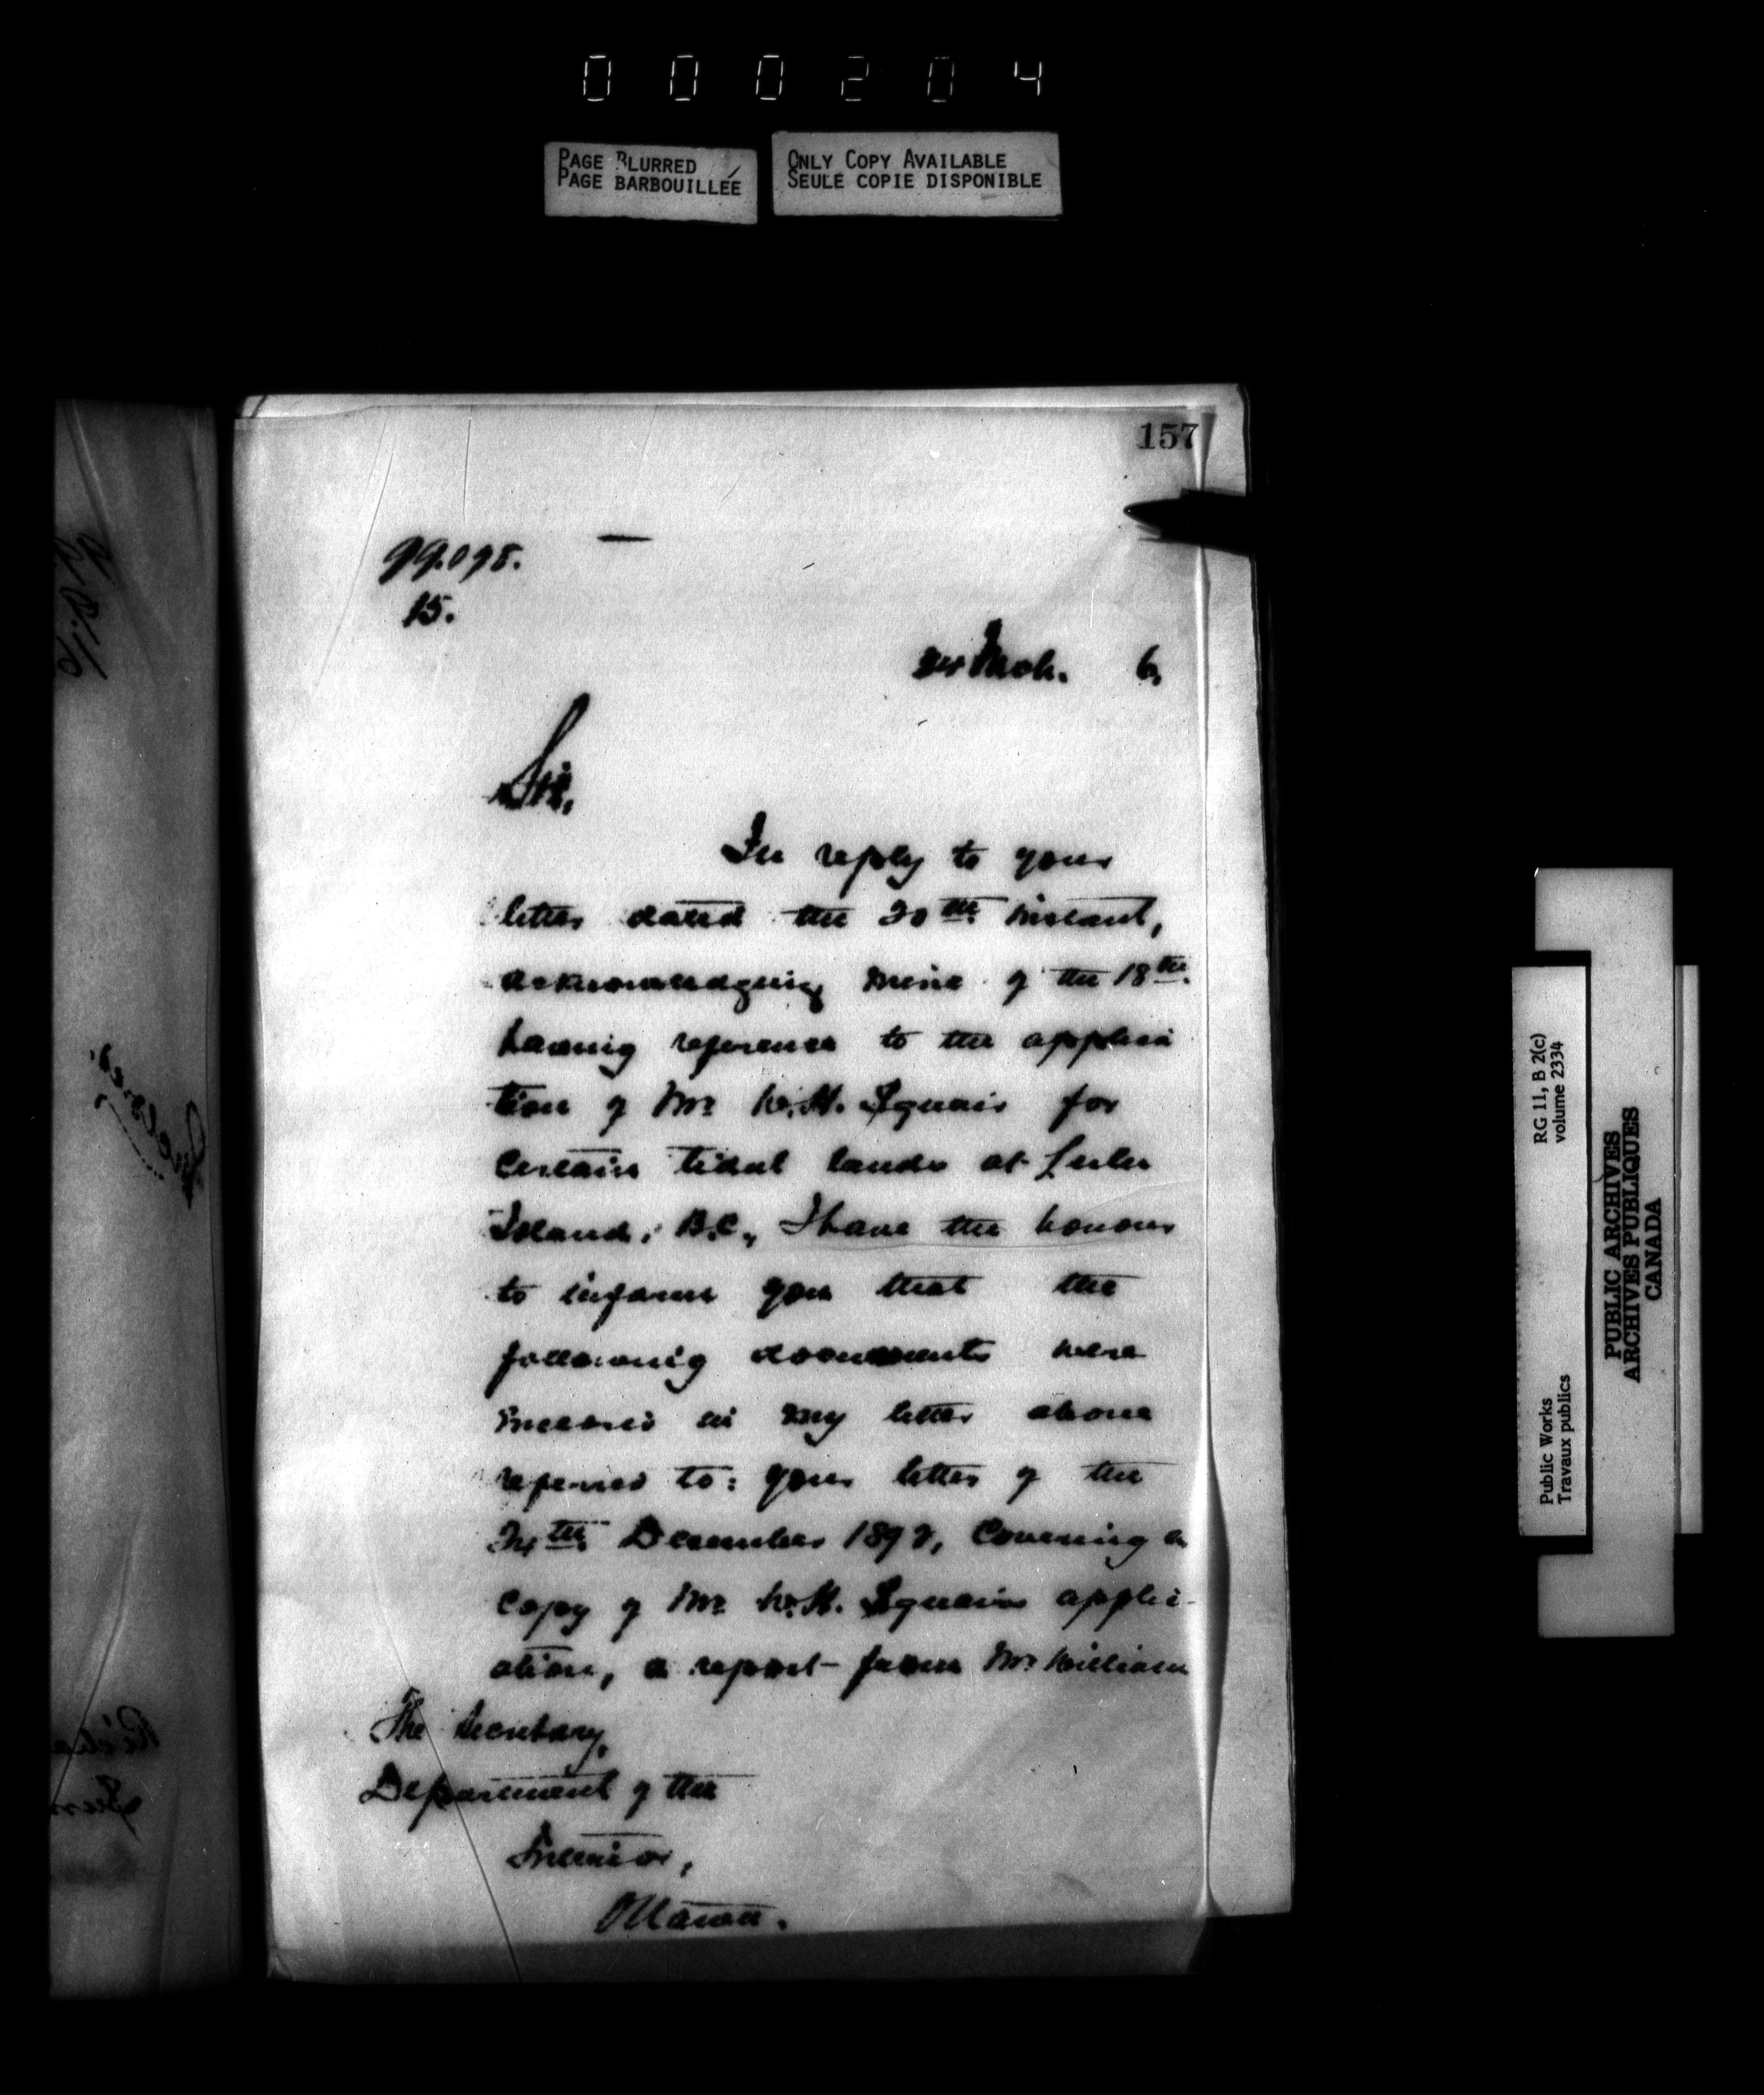 000204
PAGE BLURRED
PAGE BARBOUILLÉE
ONLY COPY AVAILABLE
SEULE COPIE DISPONIBLE
157
15.
Mch. 6,
Sir,
In reply to your
letter dated the 20th instant,
acknowledging mine of the 18th
having reference to the applica
tion of Mr W.H. Squair for
certain tidal lands at Lulu
Island, B.C., I have the honour
to inform you that the
following documents were
inclosed in my letter above
referred to: your letter of the
December 189 , covering a
copy of Mr W.H. Squair's appli-
ation, a report from Mr William
The Secretary,
Department of the
Interior,
Ottawa.
RG 11, B 2(c)
volume 2334
Public Works
Travaux publics
PUBLIC ARCHIVES
ARCHIVES PUBLIQUES
CANADA